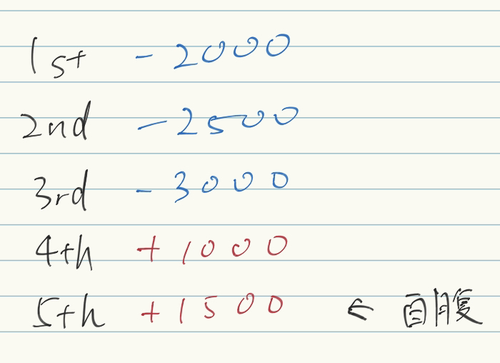 1st - 2000
2nd - 2500
3rd - 3000
4th + 1000
5th + 1500 ← 自腹